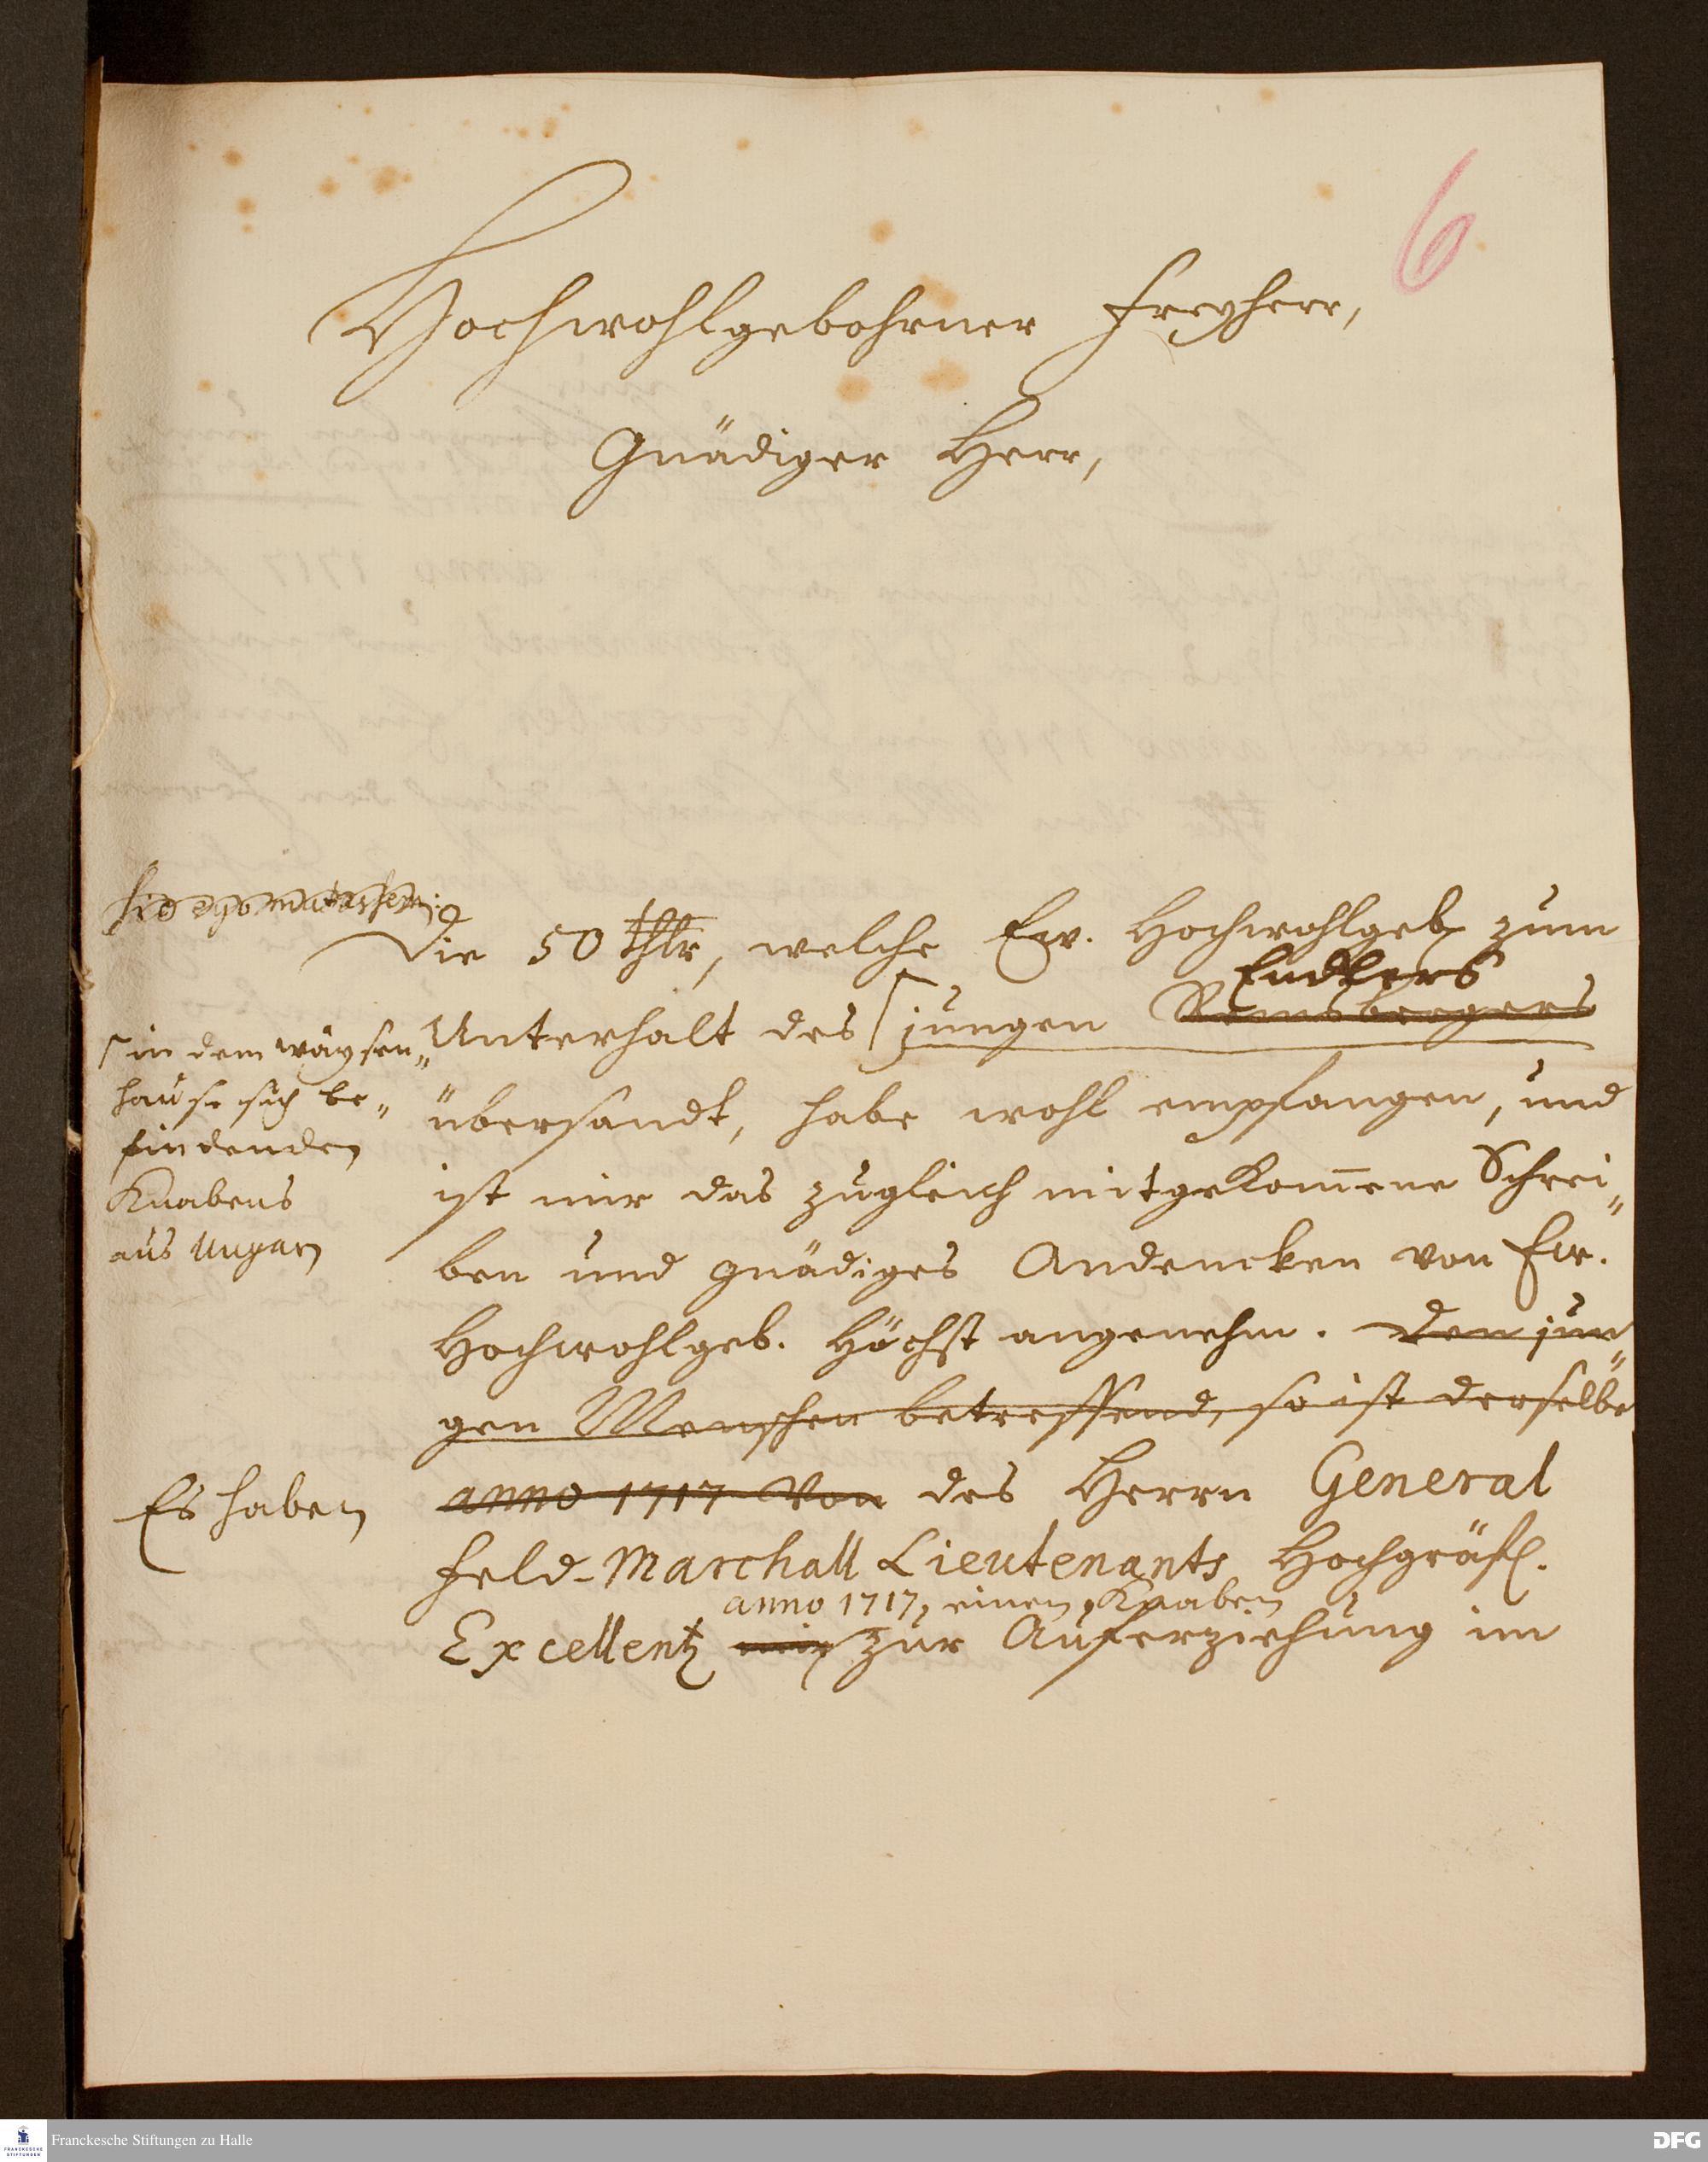 6
Hochwohlgebohrner Freyherr,
Gnädiger Herr,
Die 50 thlr, welche Ew. Hochwohlgeb. zum
Endlers
Unterhalt des jungen
in dem wäysen„
hause sich be„
findenden
Knabens
aus Ungarn
übersandt, habe wohl empfangen, und
ist mir das zugleich mitgekom̄ene Schrei„
ben und gnädiges Andencken von Ew.
Hochwohlgeb. höchst angenehm. Den jun„
gen Menschen betreffend, so ist derselbe
Es haben
anno 1717 von des Herrn General
Feld-Marchall Lieutenants Hochgräfl.
anno 1717, einen Knaben
Excellentz mir zur Auferziehung im
Franckesche Stiftungen zu Halle
FRANCKESCHE
STIFTUNGEN
DFG